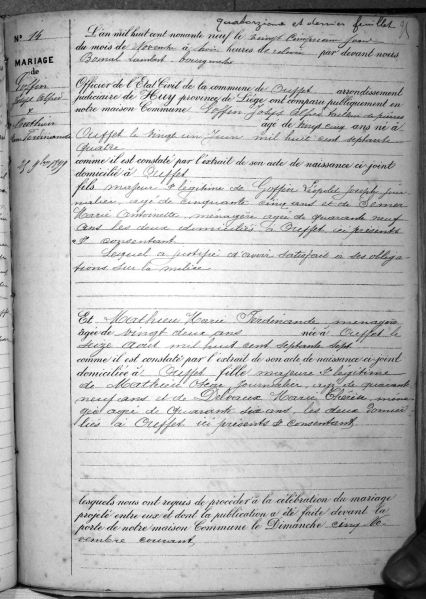 quatorzième et dernier feuillet
95
N° 14
MARIAGE
de
Goffin
Joseph Alfred
&
Mathieu
Marie Ferdinande
25 9bre 1899
L'an mil huit cent nonante neuf le vingt cinquième jour
du mois de novembre à trois heures de relevée par devant nous
Lambert bourgmestre
Officier de l'Etat Civil de la commune de Ouffet arrondissement
judiciaire de Huy province de Liège ont comparu publiquement en
notre maison Commune Goffin Joseph Alfred tailleur de pierres
âgé de vingt cinq ans né à
Ouffet le vingt un Juin mil huit cent septante
quatre
comme il est constaté par l'extrait de son acte de naissance ci-joint
domicilié à Ouffet
fils majeur & légitime de Goffin Léopold Joseph jour
nalier, âgé de cinquante cinq ans et de
Marie Antoinette, ménagère âgée de quarante neuf
ans les deux domiciliés à Ouffet ici présents
& consentant
Lequel a justifié d'avoir satisfait à ses obliga
tions sur la milice
Et Mathieu Marie Ferdinande, ménagère
âgée de vingt deux ans née à Ouffet le
seize Août mil huit cent septante sept
comme il est constaté par l'extrait de son acte de naissance ci-joint
domiciliée à Ouffet fille majeure & légitime
de Mathieu journalier, âgé de quarante
neuf ans et de Debraux Marie Thérèse, ména
gère âgée de quarante six ans, les deux domici
liés à Ouffet ici présents & consentant,
lesquels nous ont requis de procéder à la célébration du mariage
projeté entre eux et dont la publication a été faite devant la
porte de notre maison Commune le Dimanche cinq No
vembre courant,